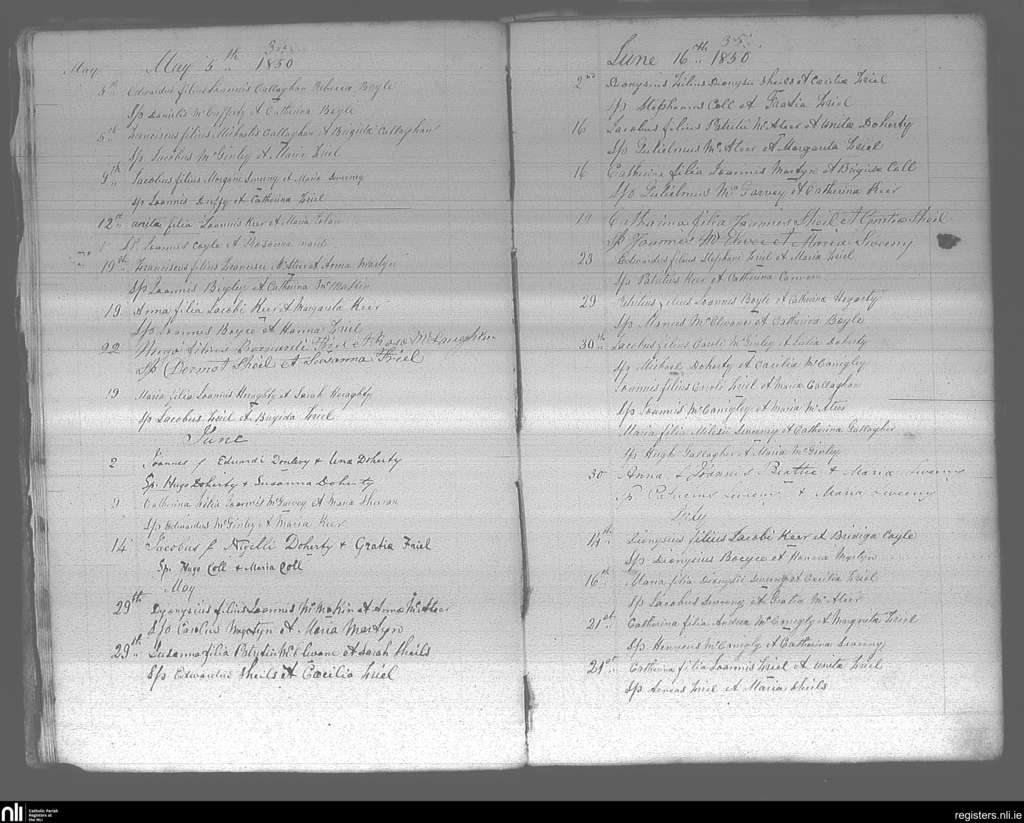 35
May May 5th 1850
5th Edwardus filius Joannis Callaghan Rebecca Boyle
Sp Daniells McCafferty et Catherina Boyle
5th Franciscus filius Michaelis Callaghan et Brigida Callaghan
Sp Jacobus McGinley et Maria Friel
9th Jacobus filius Morgani Sweeny et Maria Sweeny
Sp Joannis Duffy et Catherina Friel
12th Unita filia Joannis Keer et Maria
Sp. Joannis Coyle et Rosanne
19th Franciscus filius Francisci McAteer et Anna Martyn
Sp Joannis Begley et Catherina McMakin
19 Anna filia Jacobi Keer et Margareta Keer
Sp Joannis Boyce et Hanna Friel
22 Hugo filius Bernardi Friel et Rosa McLaughlin
Sp Dermot Sheil et Susanna Friel
19 Maria filia Joannis Heraghty et Sarah Heraghty
Sp Jacobus Friel et Brigida Friel
June
2 Joannes f Eduardi Donlevy & Una Doherty
Sp. Hugo Doherty & Susanna Doherty
9 Catherina filia Joannis McGarvey et Maria
Sp Edwardus McGinley et Maria Keer
14 Jacobus f Nigelli Doherty & Gratia Friel
Sp. Hugo Coll & Maria Coll
May
29th Dyonysius filius Joannis McMakin et Anna McAteer
Sp Carolus Martyn et Maria Martyn
29th Susanna filia Patritii McElwane et Sarah Sheils
Sp Edwardus Sheils et Cæcilia Friel
35
June 16th 1850
2nd Dionysius filius Dionysii Sheils et Cecilia Friel
Sp Stephanus Coll et Gratia Friel
16 Jacobus filius Patritii McAteer et Unita Doherty
Sp Gulielmus McAteer et Margareta Friel
16 Catherina filia Joannis Martyn et Brigida Coll
Sp Gulielmus McGarvey et Catherina Keer
19 Catharina filia Joannes Sheil et Gratia Sheil
Sp Joannes McAteer et Maria Sweeny
23 Edwardus filius Stephani Friel et Maria Friel
Sp Patritius Keer et Catherina Cannon
29 filius Joannis Boyle et Catherina Hegarty
Sp Manus McElwane et Catherina Boyle
30th Jacobus filius Caroli McGinley et Lidia Doherty
Sp Michael Doherty et Cæcilia McCanigley
Joannis filius Caroli Friel et Maria Callaghan
Sp Joannis McCanigley et Maria McAteer
Maria filia Milesii Sweeney et Catherina Gallagher
Sp Hugh Gallagher et Maria McGinley
30 Anna f Joannis Beattie & Maria Sweeny
Sp Patricius Sweeny & Maria Sweeny
July
14th Dionysius filius Jacobi Keer et Bridiga Coyle
Sp Dionysius Boyce et Hanna Martyn
16th Maria filia Dionysii Sweeny et Cecilia Friel
Sp Jacobus Sweeny et Gratia McAteer
21st Catherina filia Andrea McCanigly et Margareta Friel
Sp McCanigly et Catherina Sweeny
21st Catherina filia Joannis Friel et Unita Friel
Sp Aeneas Friel et Maria Sheils
nli Catholic Parish Registers at the NLI
registers.nli.ie